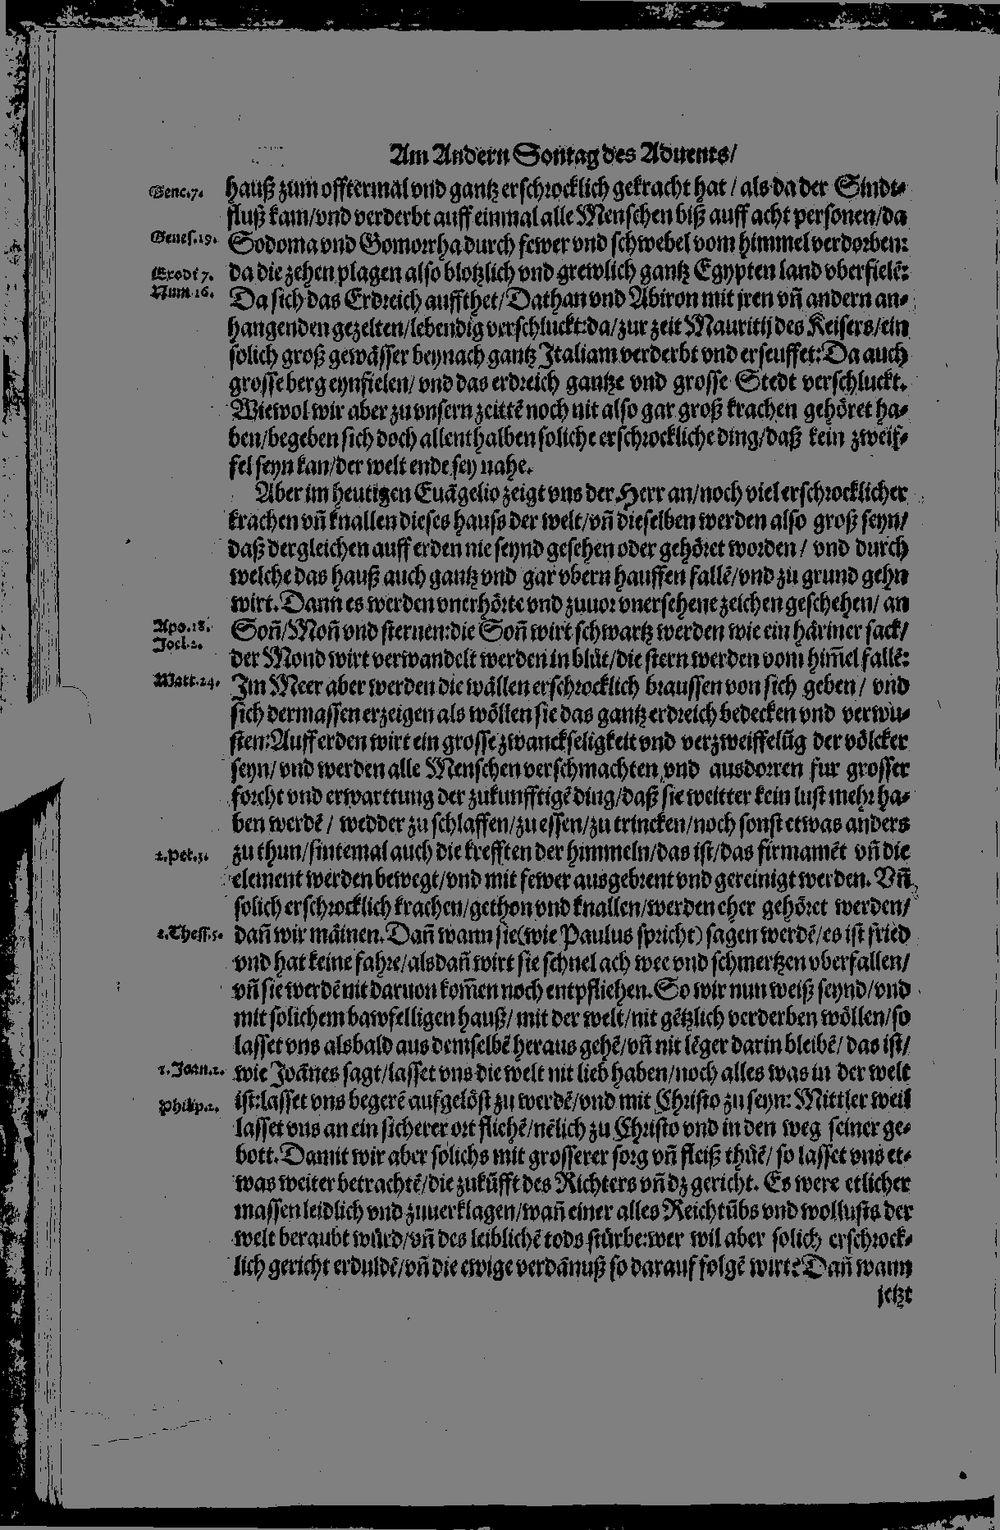 Am Andern Sontag des Aduents/
Gene.7. hauß zum offtermal vnd gantz erschrocklich gekracht hat / als da der Sindt-
fluß kam/vnd verderbt auff einmal alle Menschen biß auff acht personen/da
Genes.19. Sodoma vnd Gomorrha durch fewer vnd schwebel vom himmel verdorben:
Exodi 7. da die zehen plagen also blotzlich vnd grewlich gantz Egypten land vberfielē:
Num.16. Da sich das Erdreich auffthet/Dathan vnd Abiron mit jren vñ andern an-
hangenden gezelten/lebendig verschluckt:da/zur zeit Mauritij des Keisers/ein
solich groß gewässer beynach gantz Italiam verderbt vnd erseuffet:Da auch
grosse berg eynfielen/ vnd das erdreich gantze vnd grosse Stedt verschluckt.
Wiewol wir aber zu vnsern zeittē noch nit also gar groß krachen gehöret ha-
ben/begeben sich doch allenthalben soliche erschrockliche ding/daß kein zweif-
fel seyn kan/der welt ende sey nahe.
Aber im heutigen Euāgelio zeigt vns der Herr an/noch viel erschrocklicher
krachen vñ knallen dieses hauss der welt/vñ dieselben werden also groß seyn/
daß dergleichen auff erden nie seynd gesehen oder gehöret worden / vnd durch
welche das hauß auch gantz vnd gar vbern hauffen fallē/vnd zu grund gehn
wirt. Dann es werden vnerhörte vnd zuuor vnersehene zeichen geschehen/ an
Apo.18. Soñ/Moñ vnd sternen:die Soñ wirt schwartz werden wie ein häriner sack/
Joel.2. der Mond wirt verwandelt werden in blůt/die stern werden vom him̄el fallē:
Matt.24. Im Meer aber werden die wällen erschrocklich braussen von sich geben / vnd
sich dermassen erzeigen als wöllen sie das gantz erdreich bedecken vnd verwu-
sten:Auff erden wirt ein grosse zwanckseligkeit vnd verzweiffelūg der völcker
seyn/ vnd werden alle Menschen verschmachten vnd ausdorren fur grosser
forcht vnd erwarttung der zukunfftigē ding/daß sie weitter kein lust mehr ha-
ben werdē / wedder zu schlaffen/zu essen/zu trincken/noch sonst etwas anders
2.Pet.3. zu thun/sintemal auch die krefften der himmeln/das ist/das firmamēt vñ die
element werden bewegt/vnd mit fewer ausgebrent vnd gereinigt werden. Vñ
solich erschrocklich krachen/gethon vnd knallen/werden eher gehöret werden/
1.Thess.5. dañ wir mäinen. Dañ wann sie(wie Paulus spricht) sagen werdē/es ist fried
vnd hat keine fahre/alsdañ wirt sie schnel ach wee vnd schmertzen vberfallen/
vñ sie werdē nit daruon kom̄en noch entpfliehen. So wir nun weiß seynd/vnd
mit solichem bawfelligen hauß/ mit der welt/nit gētzlich verderben wöllen/so
lasset vns alsbald aus demselbē heraus gehē/vñ nit lēger darin bleibē/ das ist/
1.Joan.2. wie Joānes sagt/lasset vns die welt nit lieb haben/noch alles was in der welt
Philip.1. ist:lasset vns begerē aufgelöst zu werdē/vnd mit Christo zu seyn: Mittler weil
lasset vns an ein sicherer ort fliehē/nēlich zu Christo vnd in den weg seiner ge-
bott. Damit wir aber solichs mit grosserer sorg vñ fleiß thůē/ so lasset vns et-
was weiter betrachtē/die zukūfft des Richters vñ dz gericht. Es were etlicher
massen leidlich vnd zuuerklagen/wañ einer alles Reichtūbs vnd wollusts der
welt beraubt würd/vñ des leiblichē tods stürbe:wer wil aber solich erschrock-
lich gericht erduldē/vñ die ewige verdānuß so darauf folgē wirt? Dañ wann
jetzt